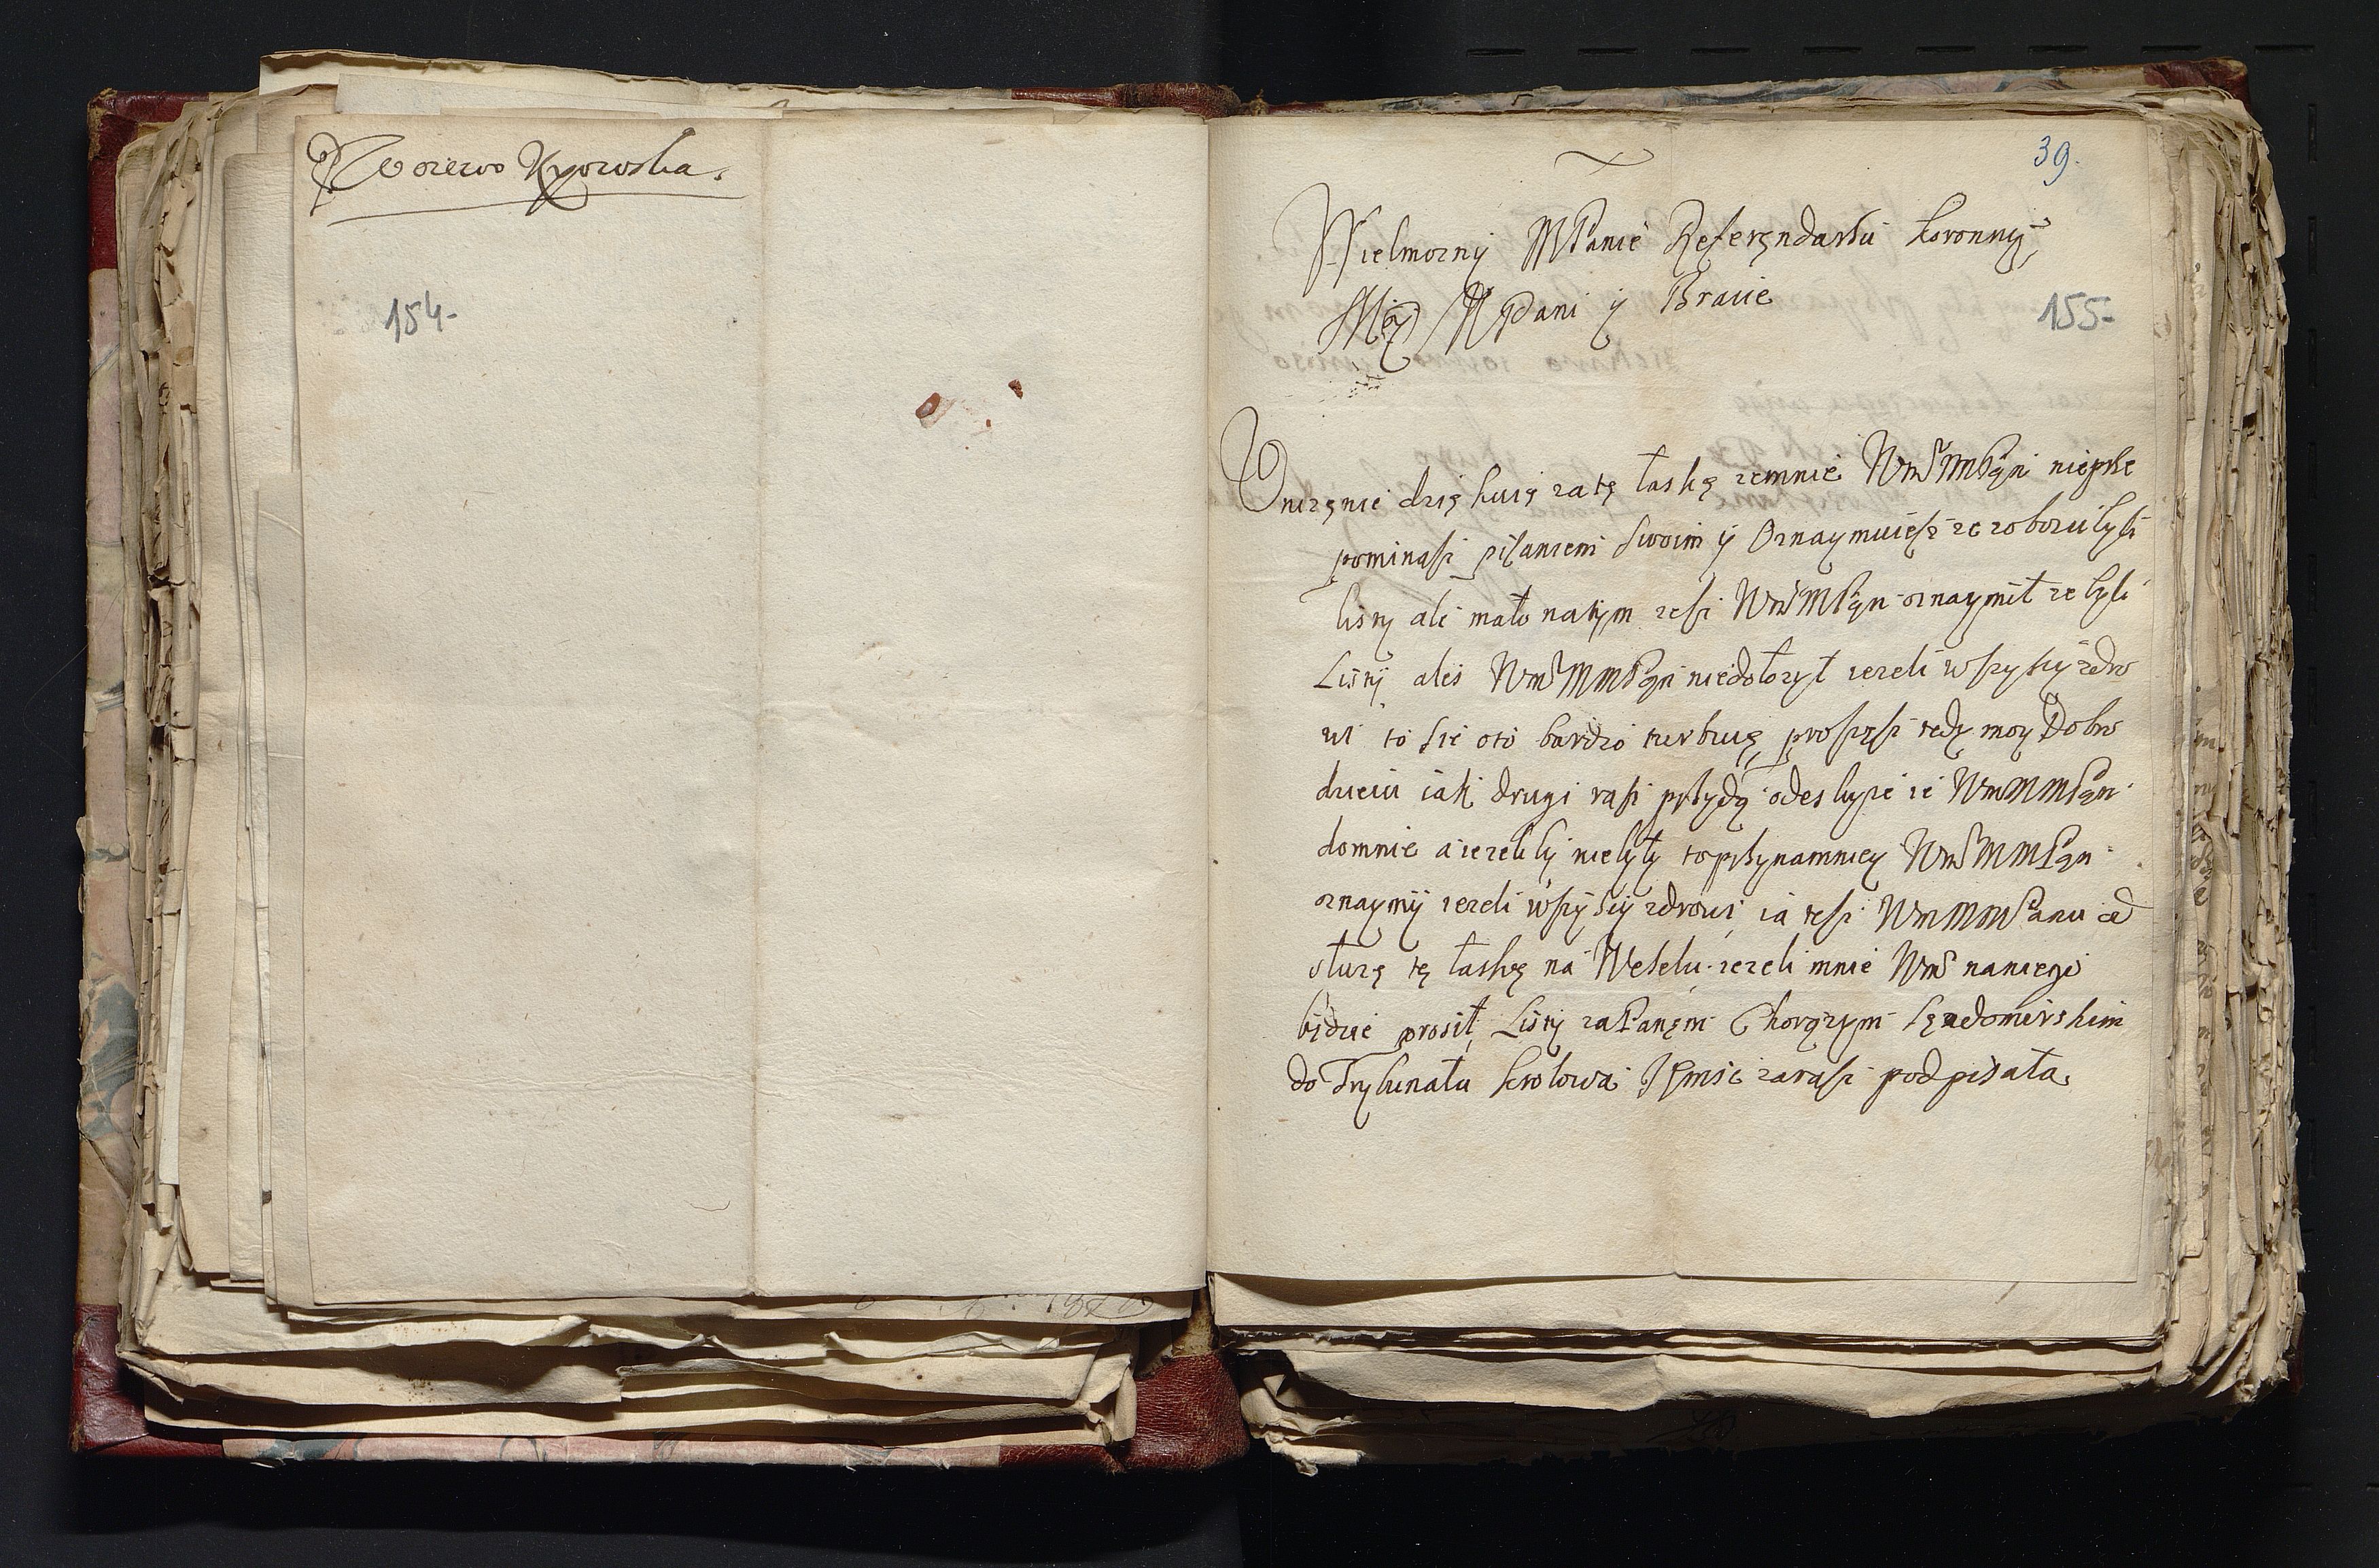 Woiewo Kyowska.
154-
39.
Wielmozny MPanie Referęndarżu koronny
Męy MPani y Bracie
155-
Unizęnie dzię kuię za tę łaskę zemnie WmSMMPąn niepże
pominasz pisaniem swoim y Oznaymuiesz ze zobozu były
listy ale mało natym zesz WmSMPąn oznaymił ze były
Listy ales WmSMMPąn niedołozył iezeli wszyscy zdro
wi to sie oto bardzo turbuię proszęsz tedy moy Dobro
dzieiu iak drugi rasz pżyydą odeslysze ie WmMMPąn
domnie aiezeliby niebyły topżynamniey WmSMMPąn
oznaymy iezeli wszyscy zdrowi ia tesz WmMMPanu od
słuzę tę łaskę na Weselu iezeli mnie WmS naniego
bidzie prosił, Listy zaPanęm Chorązym sędomirskim
do Trybunału krolowa JeMsc zarasz podpisała.